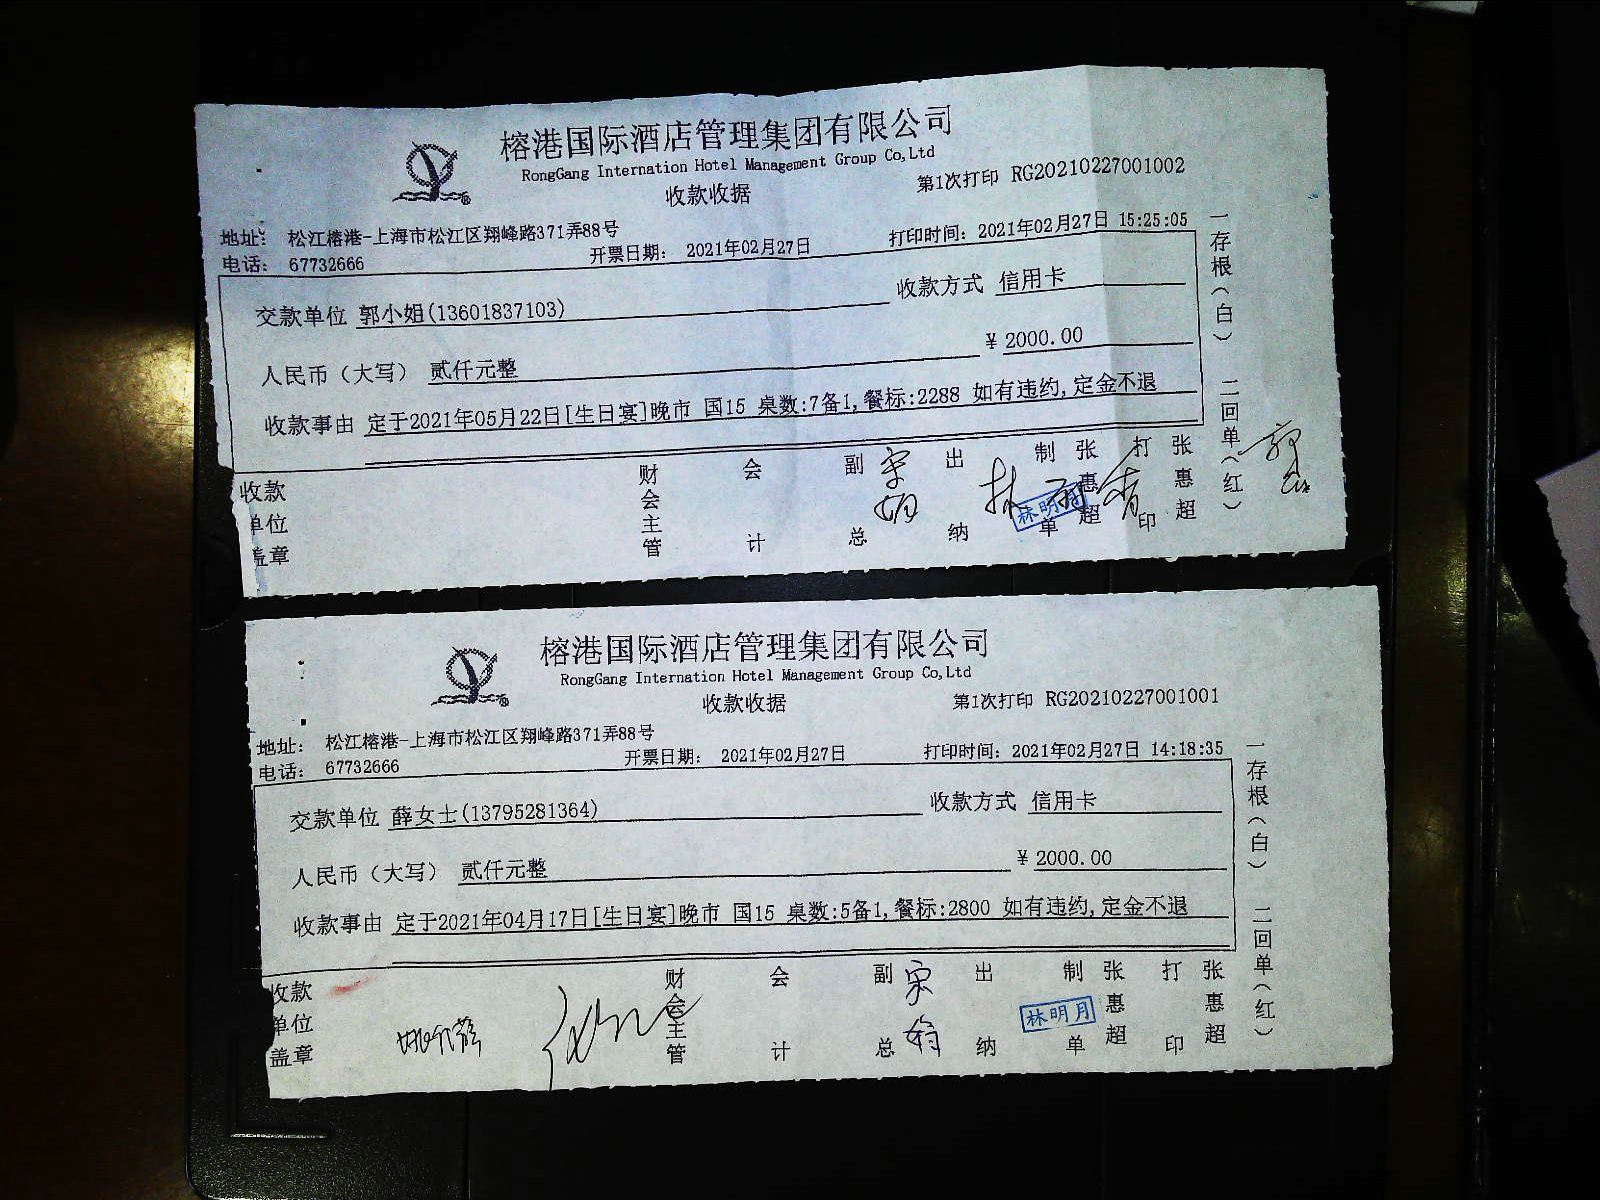 榕港国际酒店管理集团有限公司
RongGang Internation Hotel Management Group Co,Ltd
收款收据
第1次打印 RG20210227001002
地址: 松江榕港-上海市松江区翔峰路371弄88号
电话: 67732666
开票日期: 2021年02月27日
打印时间: 2021年02月27日 15:25:05
交款单位 郭小姐(13601837103)
收款方式 信用卡
人民币（大写） 贰仟元整
¥ 2000.00
收款事由 定于2021年05月22日[生日宴]晚市 国15 桌数:7备1,餐标:2288 如有违约,定金不退
收款单位盖章
财会主管
会计
副总
出纳
林明月
制单 张惠超
打印 张惠超
一存根（白） 二回单（红）
榕港国际酒店管理集团有限公司
RongGang Internation Hotel Management Group Co,Ltd
收款收据
第1次打印 RG20210227001001
地址: 松江榕港-上海市松江区翔峰路371弄88号
电话: 67732666
开票日期: 2021年02月27日
打印时间: 2021年02月27日 14:18:35
交款单位 薛女士(13795281364)
收款方式 信用卡
人民币（大写） 贰仟元整
¥ 2000.00
收款事由 定于2021年04月17日[生日宴]晚市 国15 桌数:5备1,餐标:2800 如有违约,定金不退
收款单位盖章
财会主管
会计
副总
出纳
林明月
制单 张惠超
打印 张惠超
一存根（白） 二回单（红）